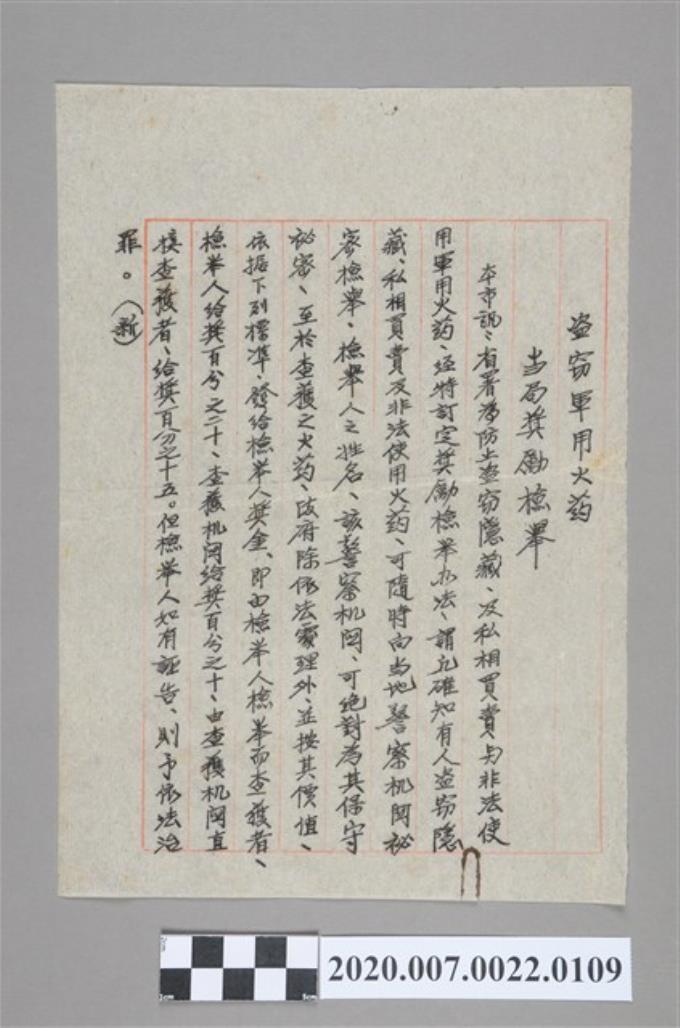 盜窃軍用火药
当局奬勵檢舉
本市訊、有署為防止盜窃隱藏、及私相買賣与非法使
用軍用火药、经特訂定奬勵檢举办法、謂凡確知有人盜窃隱
藏、私相買賣及非法使用火药、可隨時向当地警察机関秘
密檢舉、檢舉人之姓名、該警察机関、可绝對為其保守
秘密、至於查獲之火药、政府除依法處理外、並按其價值、
依据下列標準、發给檢举人奬金、即由檢举人檢举而查獲者、
檢举人给奬百分之二十、查獲机関给奬百分之十、由查獲机関直
接查獲者、给奬百分之十五。但檢举人如有誣告、則予依法治
罪。（新）
2cm
1cm
5cm
2020.007.0022.0109